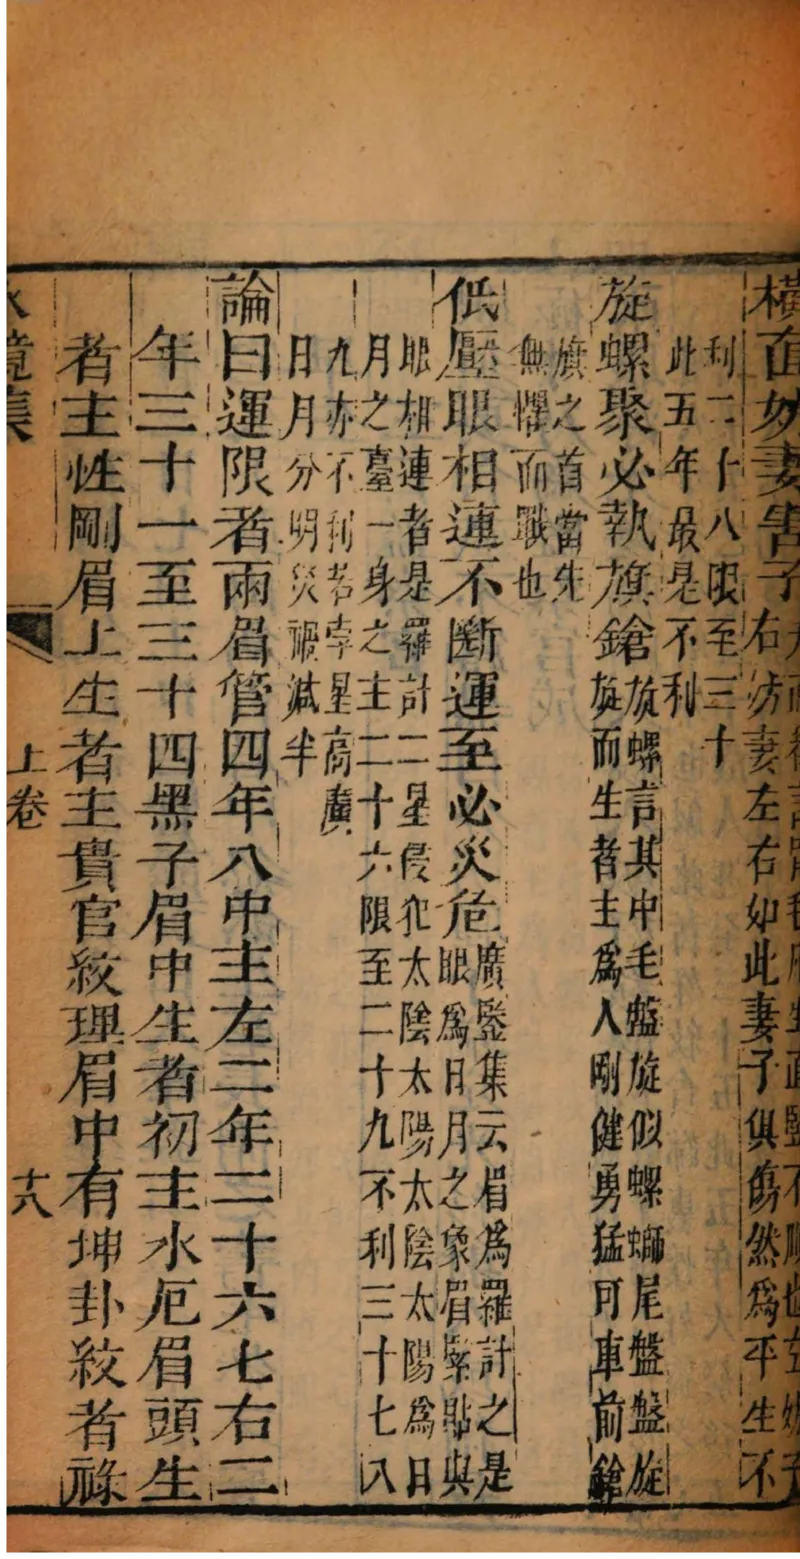 橫面妨妻害子
右妨妻左右如此妻子俱傷然爲平生不
利二十八限至三十
此五年最是不利
旋螺聚必執旗鎗
旋螺言其中毛盤旋似螺螄尾盤盤旋
旋而生者主爲人剛健勇猛可車前鎗
旗之首當先
無懼而戰也
低壓眼相連不斷運至必災危
廣鑒集云眉爲羅計之是
眼爲日月之象眉緊貼與
眼相連者是羅計二星侵犯太陰太陽太陰太陽爲日
月之臺一身之主二十六限至二十九不利三十七八
九亦不利若孛星高廣
日月分明災禍減半
論曰運限者兩眉管四年八中主左二年二十六七右二
年三十一至三十四黑子眉中生者初主水厄眉頭生
者主性剛眉上生者主貴官紋理眉中有坤卦紋者祿
水鏡集
上卷
十八